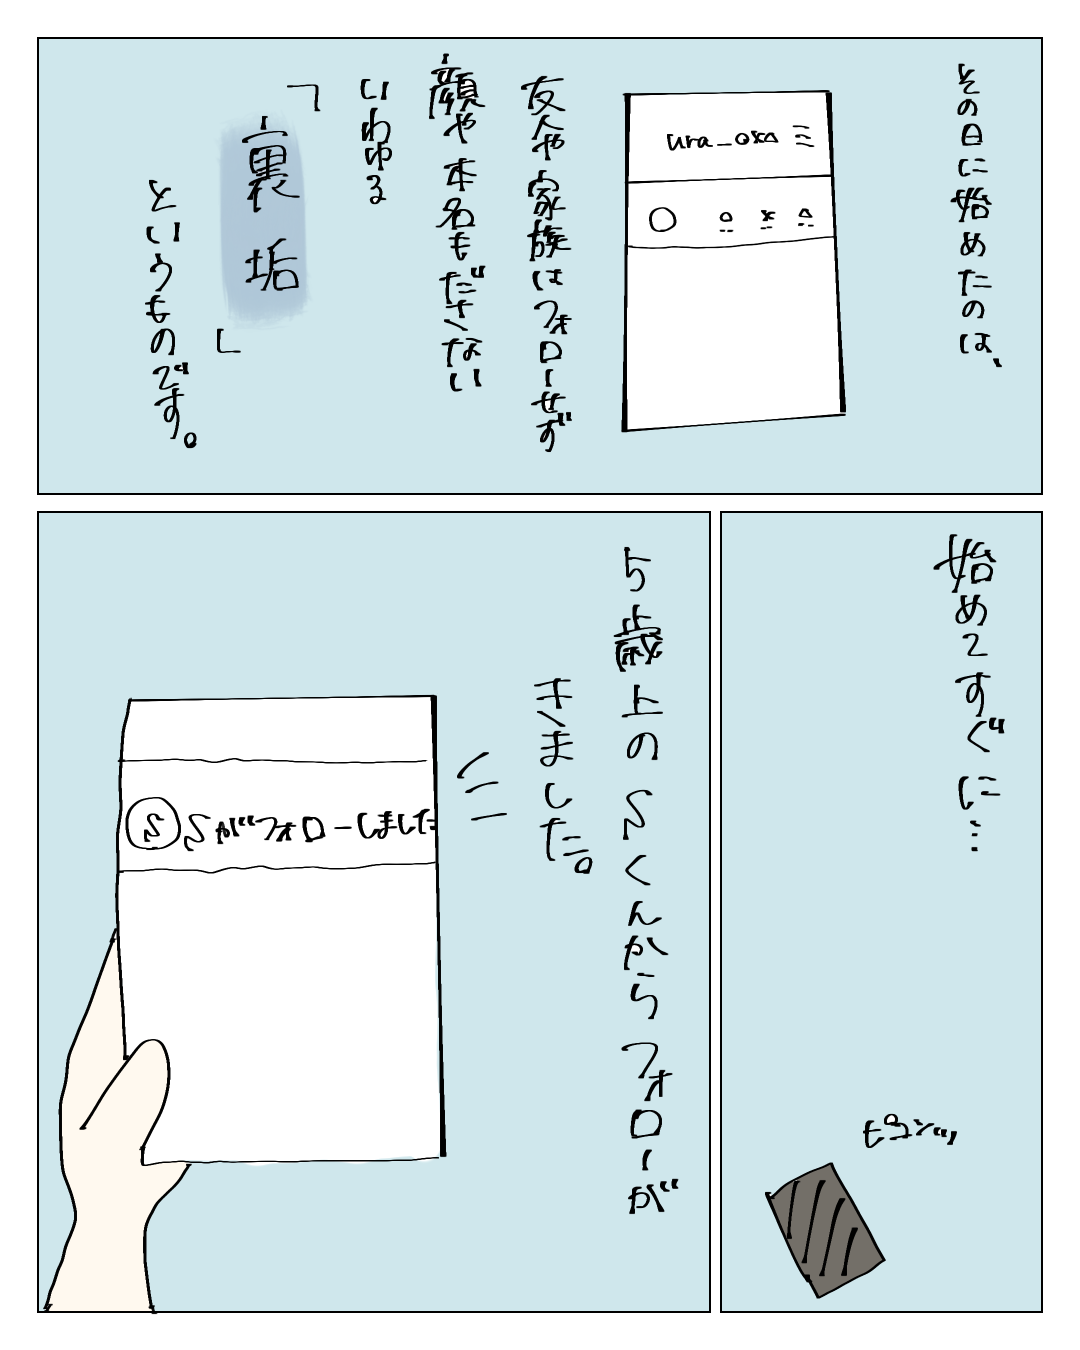 その日に始めたのは、
ura_oka
友人や家族はフォローせず
顔や本名もださない
いわゆる
「裏垢」
というものです。
始めてすぐに…
ピコンッ
5歳上のSくんからフォローが
きました。
S
Sがフォローしました